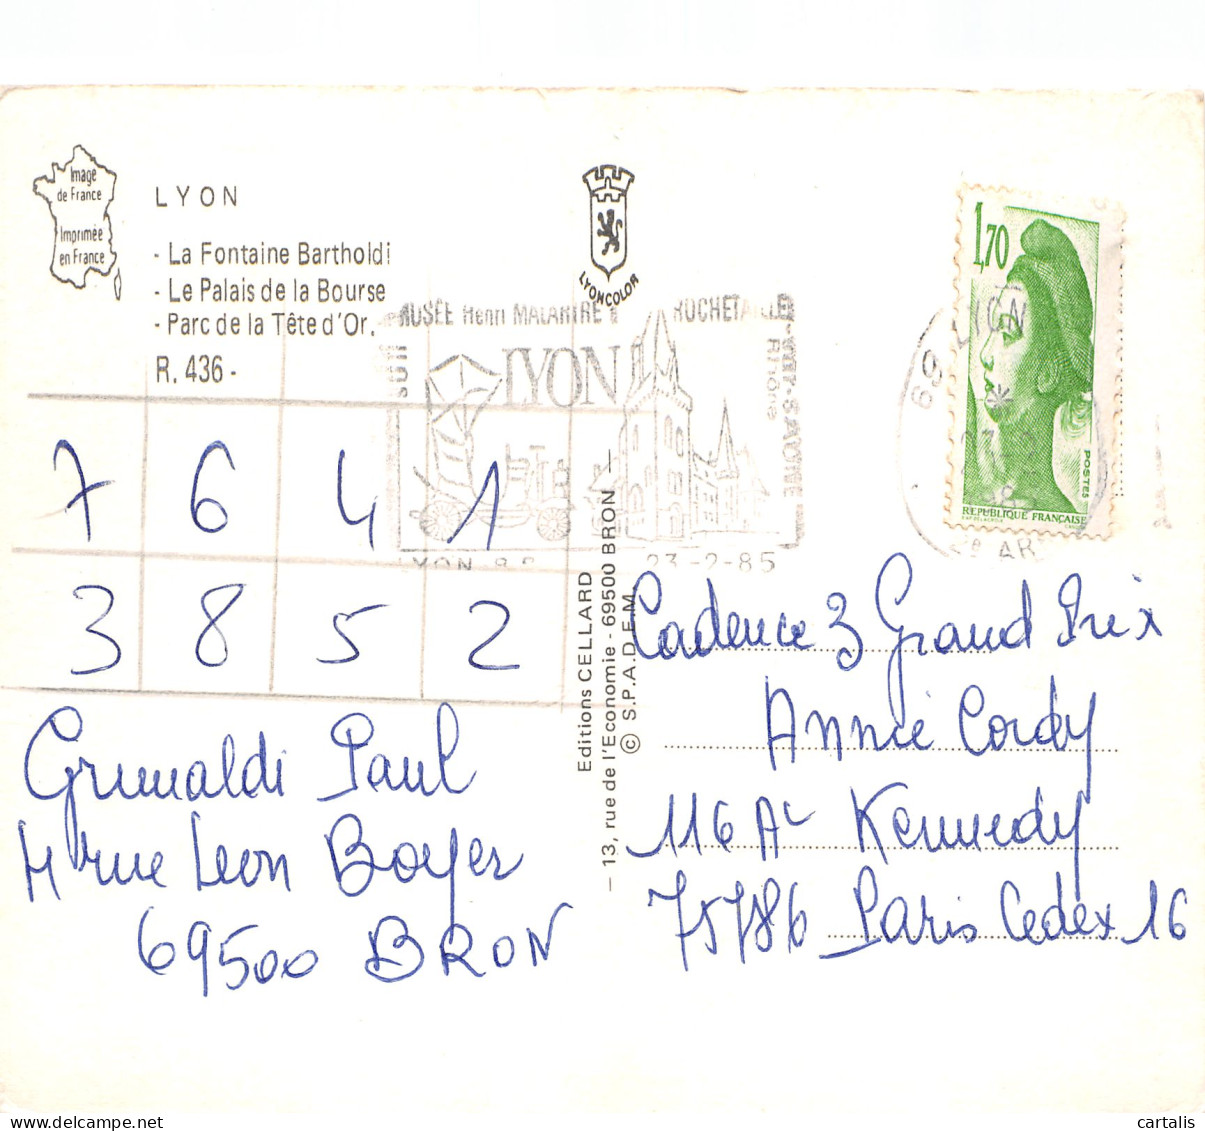 Image
de France
Imprimée
en France
LYON
- La Fontaine Bartholdi
- Le Palais de la Bourse
- Parc de la Tête d'Or.
R. 436 -
LYONCOLOR
MUSÉE Henri MALARTRE
ROCHETAILLEE
SUR
LYON
Rhône
SAONE
LYON
23-2-85
1,70
POSTES
RÉPUBLIQUE FRANÇAISE
69 LYON
7 6 4 1
3 8 5 2
Grimaldi Paul
4 rue Leon Boyer
69500 BRON
Editions CELLARD
- 13, rue de l'Economie - 69500 BRON -
© S.P.A.D.E.M.
Cadence 3 Grand Prix
Annie Cordy
116 Av Kennedy
75786 Paris Cedex 16
cartalis